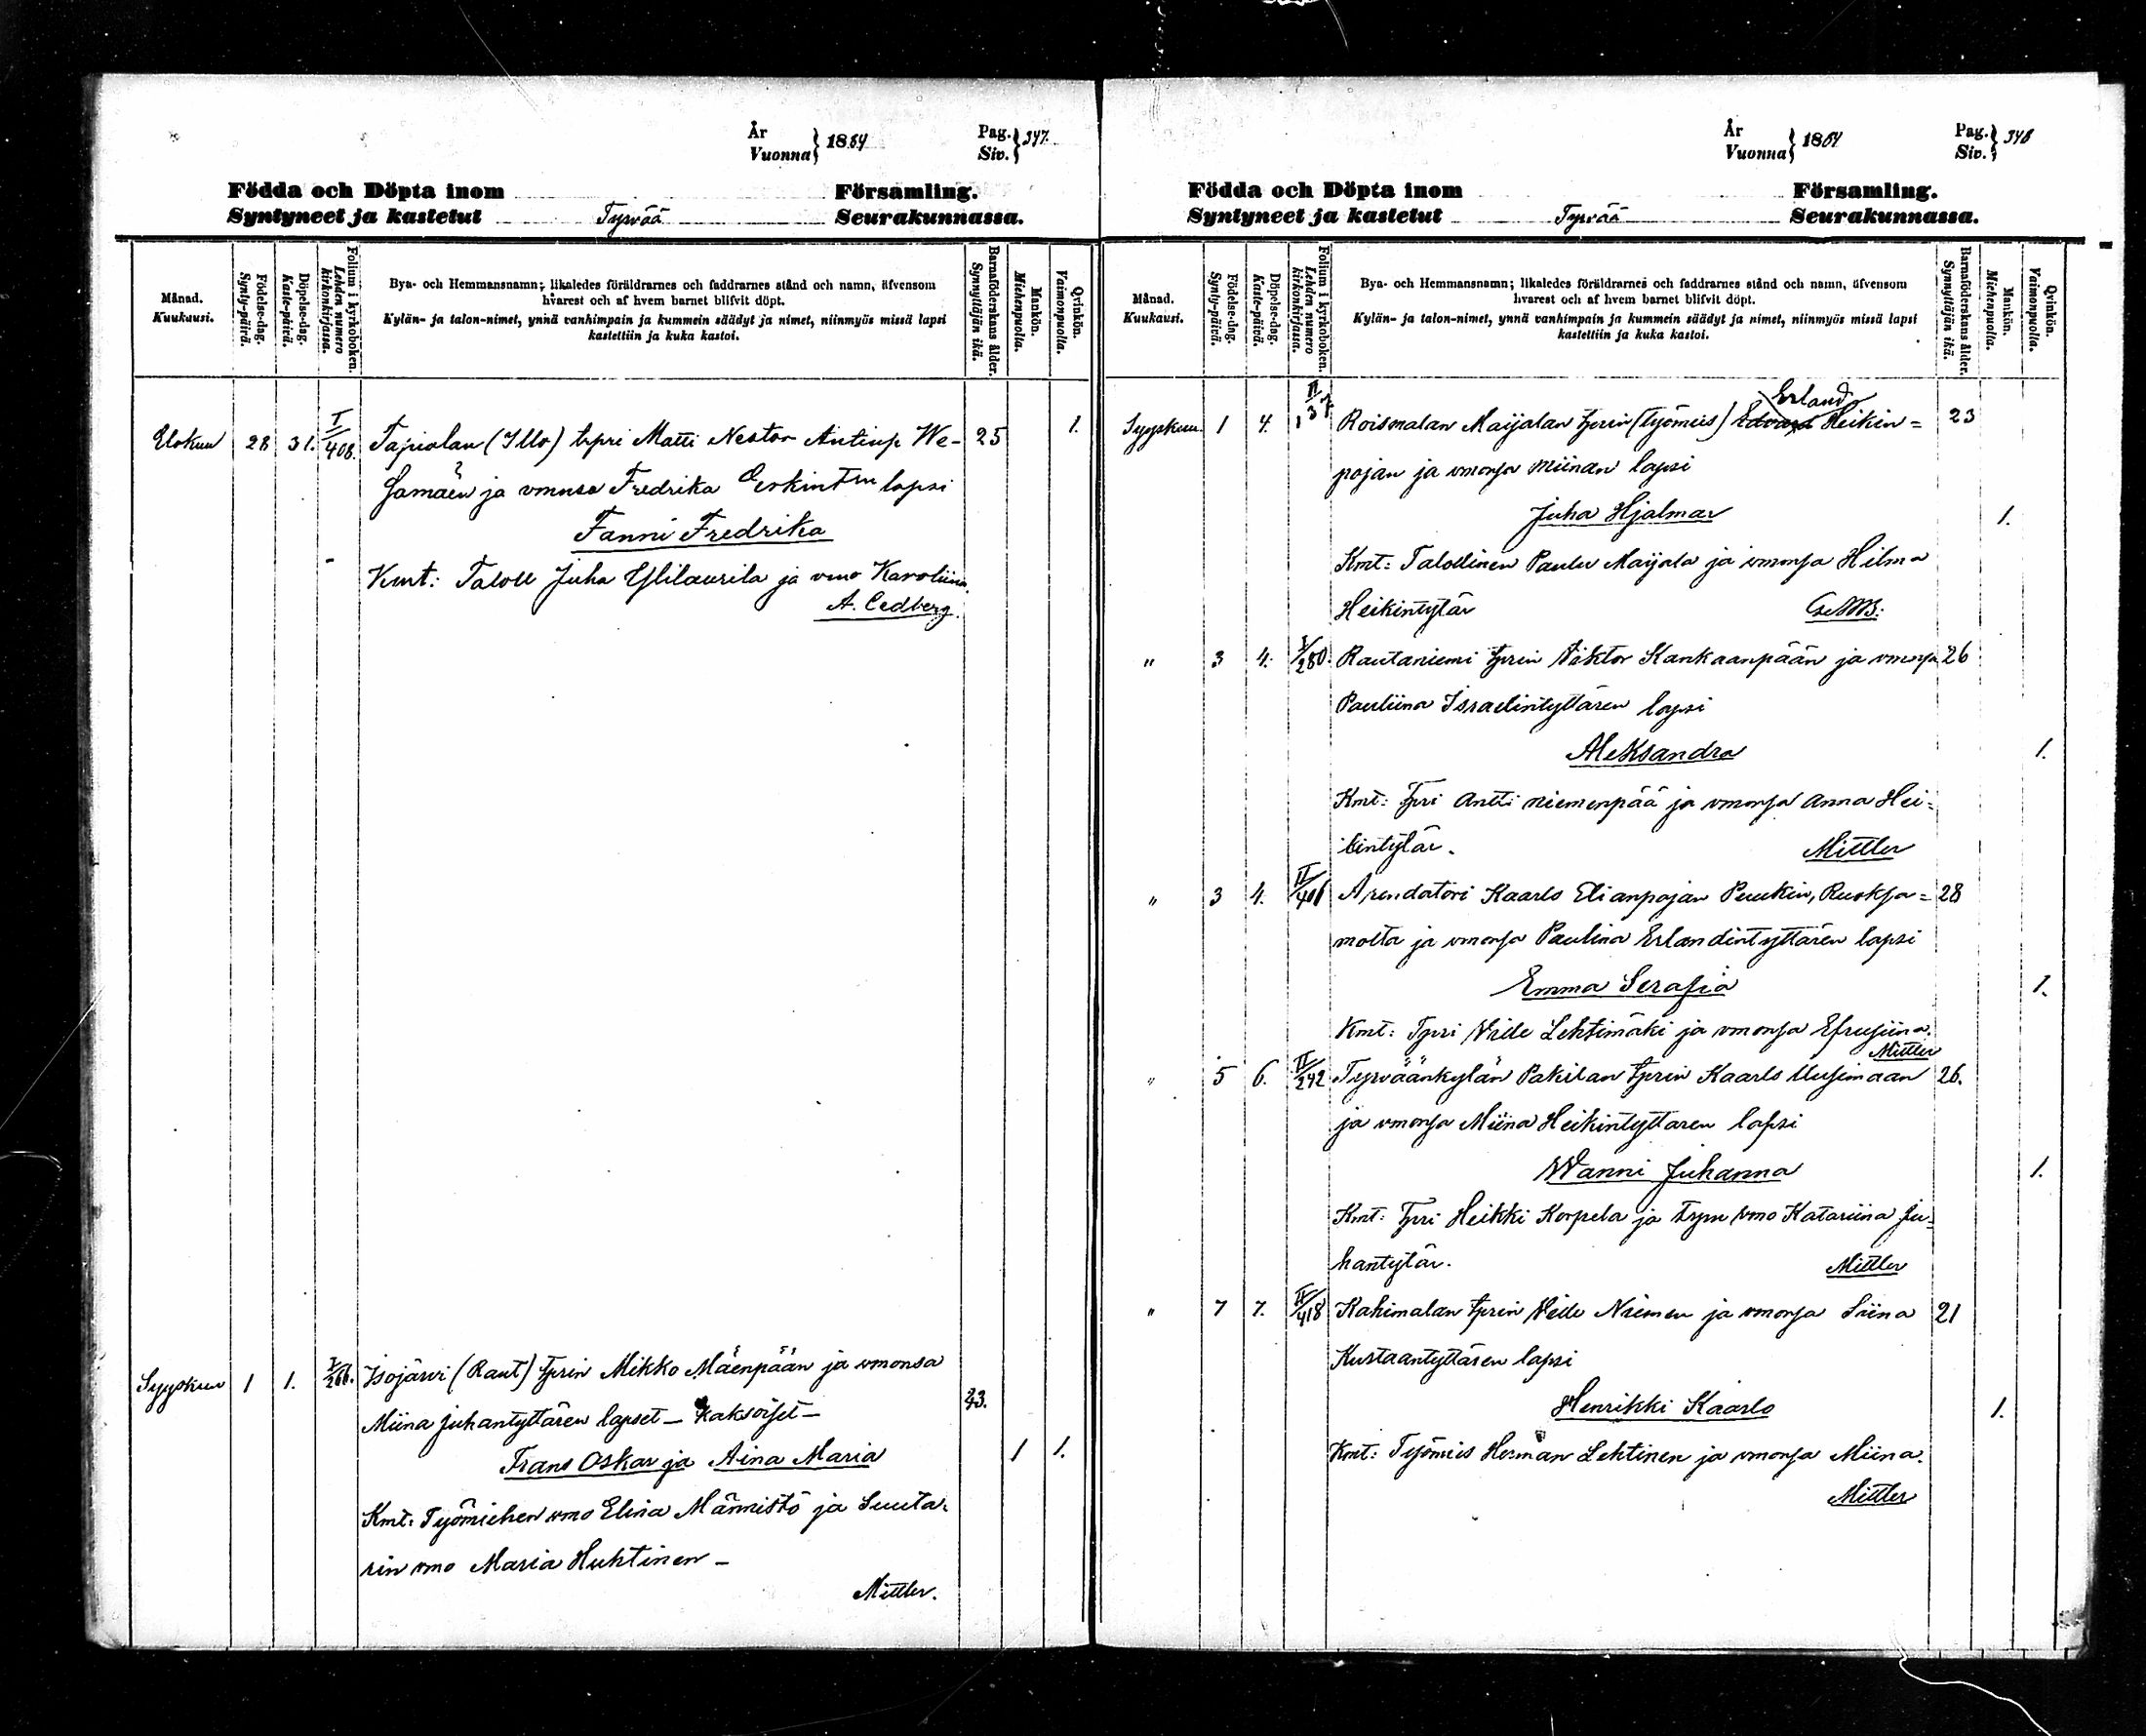 År
Vuonna } 1884
Pag.
Siv. } 347.
Födda och Döpta inom Församling.
Syntyneet ja kastetut Tyrvää Seurakunnassa.
Månad.
Kuukausi.
Födelse-dag.
Synty-päivä.
Döpelse-dag.
Kaste-päivä.
Folium i kyrkoboken.
Lehden numero kirkonkirjassa.
Bya- och Hemmansnamn; likaledes föräldrarnes och faddrarnes stånd och namn, äfvensom
hvarest och af hvem barnet blifvit döpt.
Kylän- ja talon-nimet, ynnä vanhimpain ja kummein säädyt ja nimet, niinmyös missä lapsi
kastettiin ja kuka kastoi.
Barnaföderskans ålder.
Synnyttäjän ikä.
Mankön.
Miehenpuolia.
Qvinkön.
Vaimonpuolia.
Elokuu 28 31. I/408. Tapiolan (Illo) tpri Matti Nestor Antinp We- 25 1.
hamäen ja vmnsa Fredrika lapsi
Fanni Fredrika
Kmt: Taloll Juha Ylilaurila ja vmo Karoliina
A. Cedberg.
Syyskuu 1 1. I/266. Isojärvi (Raut) tprin Mikko Mäenpään ja vmonsa
Miina Juhantyttären lapset - kaksoiset - 43.
Frans Oskar ja Aina Maria 1 1.
Kmt: Työmiehen vmo Elina Männistö ja Suuta-
rin vmo Maria Huhtinen -
Mittler.
År
Vuonna } 1884
Pag.
Siv. } 348
Födda och Döpta inom Församling.
Syntyneet ja kastetut Tyrvää Seurakunnassa.
Månad.
Kuukausi.
Födelse-dag.
Synty-päivä.
Döpelse-dag.
Kaste-päivä.
Folium i kyrkoboken.
Lehden numero kirkonkirjassa.
Bya- och Hemmansnamn; likaledes föräldrarnes och faddrarnes stånd och namn, äfvensom
hvarest och af hvem barnet blifvit döpt.
Kylän- ja talon-nimet, ynnä vanhimpain ja kummein säädyt ja nimet, niinmyös missä lapsi
kastettiin ja kuka kastoi.
Barnaföderskans ålder.
Synnyttäjän ikä.
Mankön.
Miehenpuolia.
Qvinkön.
Vaimonpuolia.
Erland
Syyskuu 1 4. Roismalan Maijalan tprin (työmies) Edvard Heikin= 23
pojan ja vmonsa Miinan lapsi
Juha Hjalmar 1.
Kmt: Talollinen Paulu Maijala ja vmonsa Hilma
Heikintytär
" 3 4. I/280. Rautaniemi tprin Viktor Kankaanpään ja vmonsa 26
Pauliina Israelintyttären lapsi
Aleksandra 1.
Kmt: Tpri Antti Niemenpää ja vmonsa Anna Hei=
kintytär. Mittler
" 3 4. II/401 Arendatori Kaarlo Elianpojan Puukin, Ruoksa= 28
molta ja vmonsa Paulina Erlandintyttären lapsi
Emma Serafia 1.
Kmt: Tpri Ville Lehtimäki ja vmonsa Efrusiina.
Mittler
" 5 6. II/242 Tyrväänkylän Pakilan tprin Kaarlo Uusimaan 26.
ja vmonsa Miina Heikintyttaren lapsi
Wanni Juhanna 1.
Kmt: Tpri Heikki Korpela ja vmo Katariina Ju-
hantytär. Mittler
" 7 7. II/418 Kahimalan tprin Ville Niemen ja vmonsa Siina 21
Kustaantyttären lapsi
Henrikki Kaarlo 1.
Kmt: Työmies Herman Lehtinen ja vmonsa Miina.
Mittler